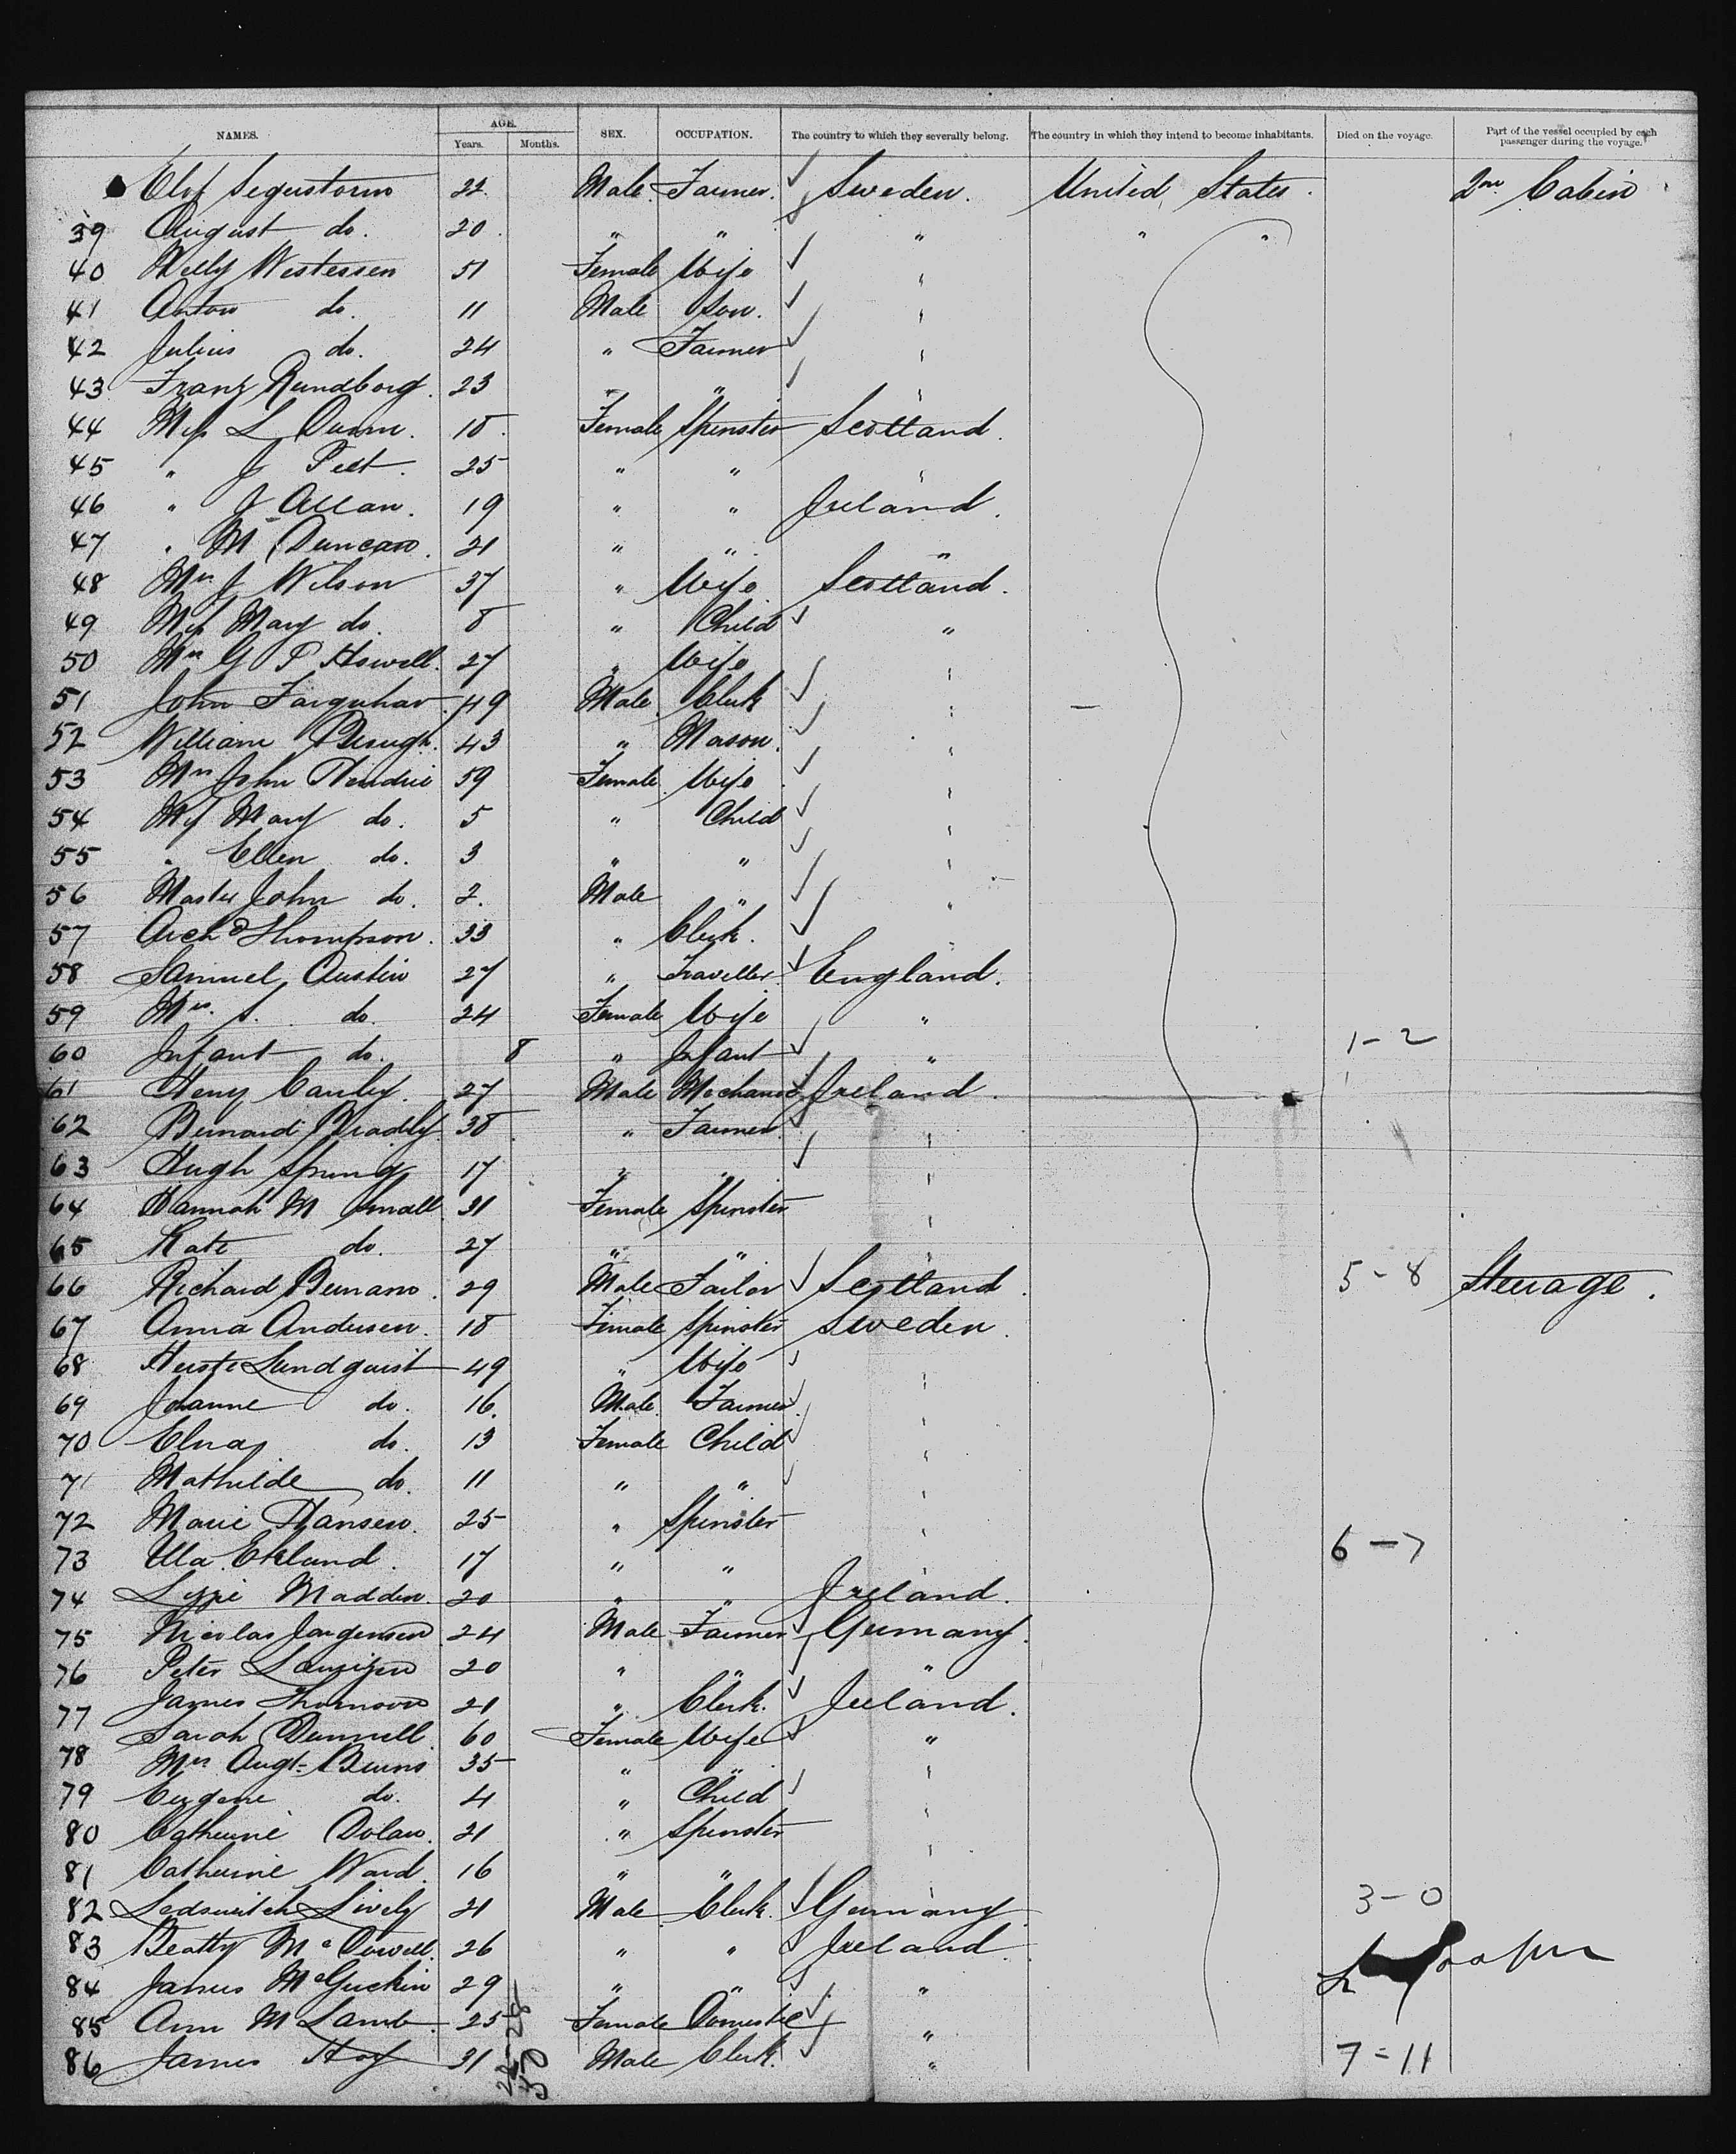 NAMES. AGE. SEX. OCCUPATION. The country to which they severally belong. The country in which they intend to become inhabitants. Died on the voyage. Part of the vessel occupied by each passenger during the voyage.
Years. Months.
Elof Segerstorm 22 Male Farmer. Sweden. United States. 2nd Cabin
39 August do. 20 " " " " "
40 Nelly Westessen 51 Female Wife "
41 Anton do. 11 Male Son. "
42 Julius do. 24 " Farmer "
43 Franz Rundborg. 23 " " "
44 Miss L Dunn. 18. Female Spinster Scotland.
45 " J Peet. 25 " " "
46 " J Allan. 19 " " Ireland.
47 " M Duncan. 21 " " "
48 Mrs J Wilson 37 " Wife Scotland.
49 Miss Mary do. 8 " Child "
50 Mrs G P Howell. 27 " Wife "
51 John Farquhar. 49 Male Clerk "
52 William Brugh. 43 " Mason. "
53 Mrs John Hendrie 59 Female. Wife "
54 Miss Mary do. 5 " Child "
55 " Ellen do. 3 " " "
56 Master John do. 2. Male " "
57 Archd Thompson. 33 " Clerk.
58 Samuel Austin 27 " Traveller. England.
59 Mrs. S. do. 24 Female Wife "
60 Infant do. 8 " Infant " 1-2
61 Henry Canley. 27 Male Mechanic Ireland.
62 Bernard Bradly. 38 " Farmer. "
63 Hugh Spring 17 " " "
64 Hannah M Small 31 Female Spinster "
65 Kate do. 27 " " "
66 Richard Brinan. 29 Male Tailor Scotland. 5-8 Steerage.
67 Anna Andersen. 18 Female Spinster Sweden.
68 Lundquist 49 " Wife "
69 Johanne do. 16. Male. Farmer. "
70 Elna do. 13 Female Child "
71 Mathilde do. 11 " " "
72 Marie Hansen. 25 " Spinster "
73 Ulla Eklund. 17 " " " 6-7
74 Lizzie Madden. 20 " " Ireland.
75 Nicolas Jorgensen 24 Male Farmer Germany.
76 Peter Lauritzen 20 " " "
77 James Thomson 21 " Clerk. Ireland.
Sarah Dunnill 60 Female Wife "
78 Mrs Augt. Burns 35 " " "
79 Eugene do. 4 " Child "
80 Catherine Dolan. 21 " Spinster "
81 Catherine Ward. 16 " " "
82 Lively 21 Male. Clerk. Germany. 3-0
83 Beatty McDowell. 26 " " Ireland.
84 James McGuckin 29 " " "
85 Ann M Lamb. 25 Female Domestic "
86 James Hoy 31 Male Clerk. " 7=11